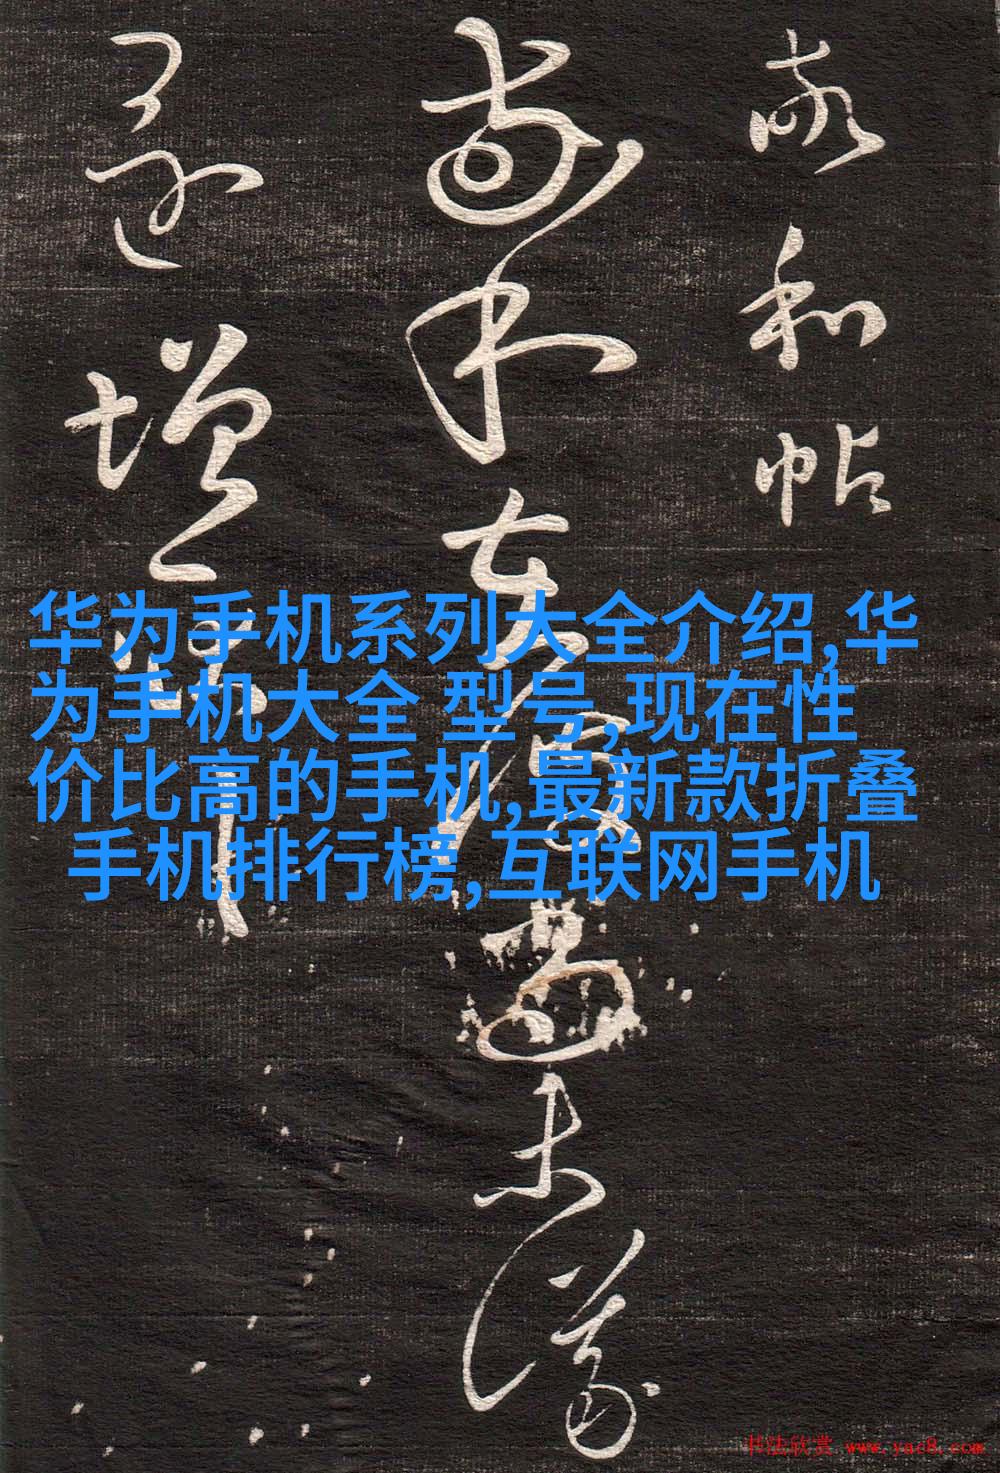 敬和帖
敬和在尚未議
還增
华为手机系列大全介绍,华
为手机大全 型号,现在性
价比高的手机,最新款折叠
手机排行榜,互联网手机
书法欣赏 www.yac8.com